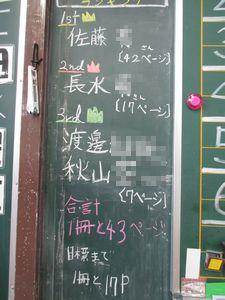 ランキング
1st
佐藤 さん
[42ページ]
2nd
長水
[17ページ]
3rd
渡邉
秋山
[7ページ]
合計
1冊と43ページ
目標まで
1冊と17P